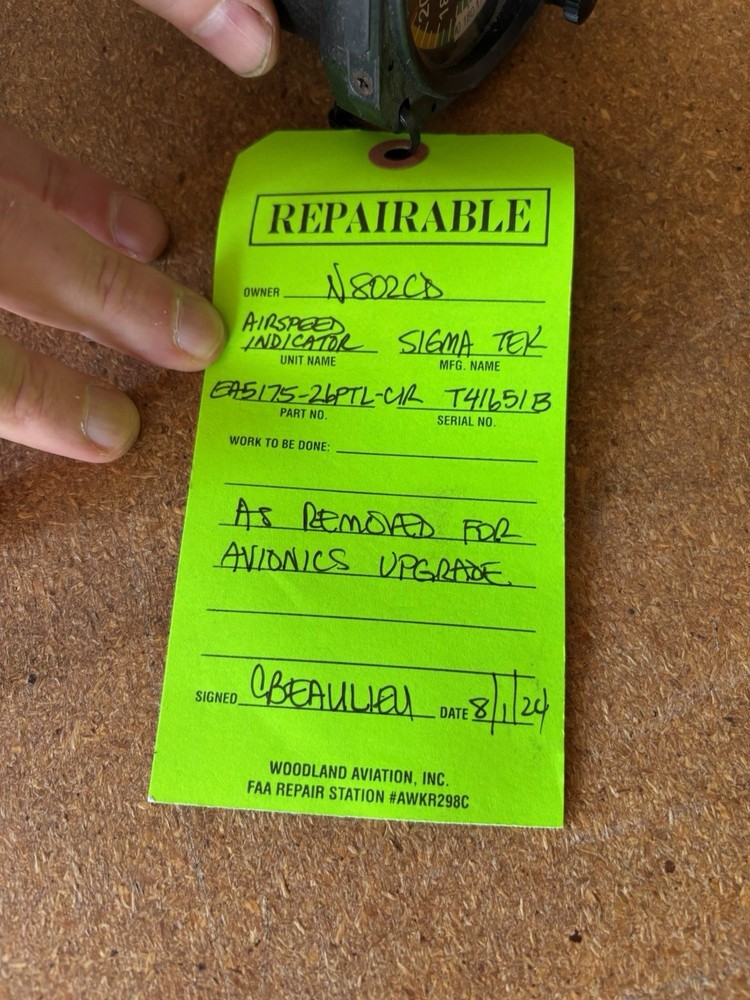 REPAIRABLE
OWNER N802CD
AIRSPEED INDICATOR SIGMA TEK
UNIT NAME MFG. NAME
EA5175-26PTL-C1R T41651B
PART NO. SERIAL NO.
WORK TO BE DONE:
AS REMOVED FOR
AVIONICS UPGRADE.
SIGNED CBEAULIEU DATE 8/1/24
WOODLAND AVIATION, INC.
FAA REPAIR STATION #AWKR298C